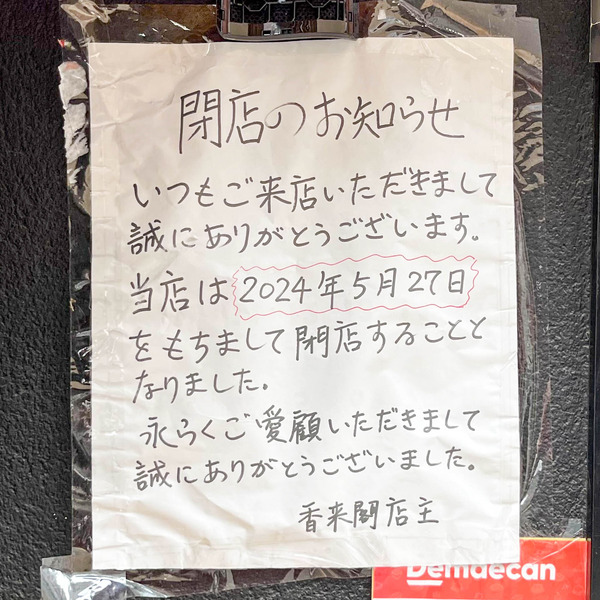 閉店のお知らせ
いつもご来店いただきまして
誠にありがとうございます。
当店は2024年5月27日
をもちまして閉店することと
なりました。
永らくご愛顧いただきまして
誠にありがとうございました。
香来閣店主
Demaecan